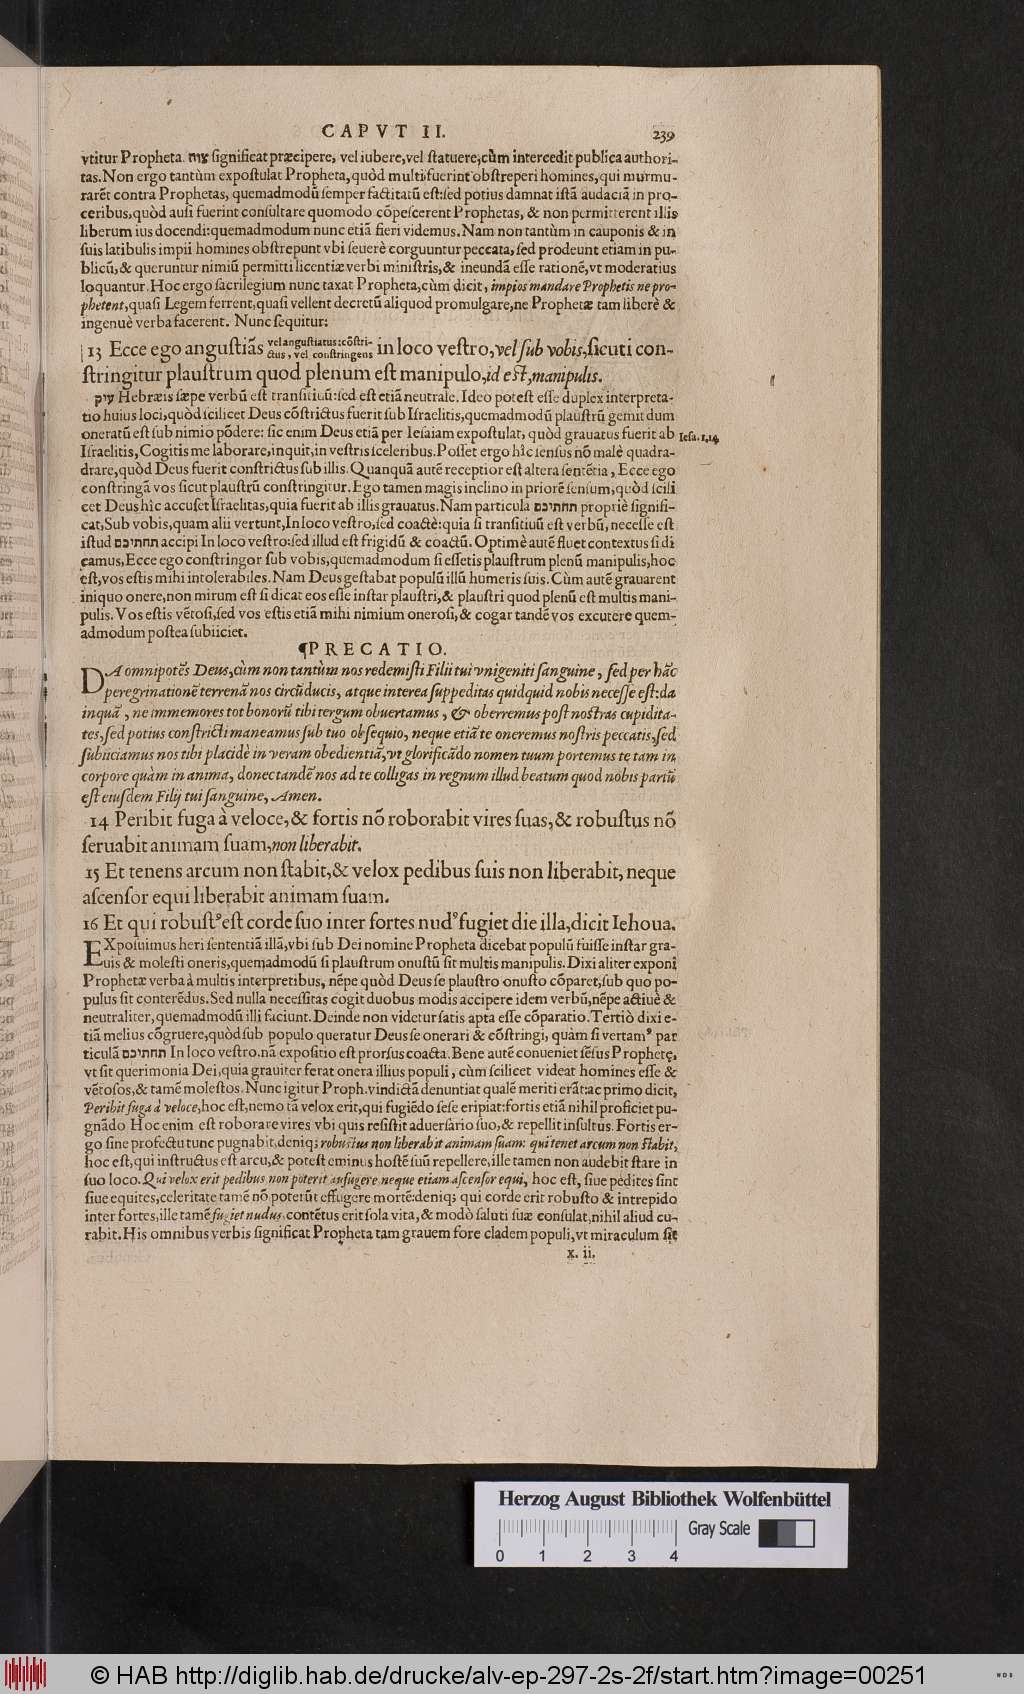 CAPVT II. 239
vtitur Propheta. צוה ſignificat præcipere, vel iubere, vel ſtatuere, cùm intercedit publica authori-
tas. Non ergo tantùm expoſtulat Propheta, quòd multi fuerint obſtreperi homines, qui murmu-
rarẽt contra Prophetas, quemadmodũ ſemper factitatũ eſt: ſed potius damnat iſtã audaciã in pro-
ceribus, quòd auſi fuerint conſultare quomodo cõpeſcerent Prophetas, & non permitterent illis
liberum ius docendi: quemadmodum nunc etiã fieri videmus. Nam non tantùm in cauponis & in
ſuis latibulis impii homines obſtrepunt vbi ſeuerè corguuntur peccata, ſed prodeunt etiam in pu-
blicũ, & queruntur nimiũ permitti licentiæ verbi miniſtris, & ineundã eſſe rationẽ, vt moderatius
loquantur. Hoc ergo ſacrilegium nunc taxat Propheta, cùm dicit, impios mandare Prophetis ne pro-
phetent, quaſi Legem ferrent, quaſi vellent decretũ aliquod promulgare, ne Prophetæ tam liberè &
ingenuè verba facerent. Nunc ſequitur:
13 Ecce ego anguſtiãs vel anguſtiatus: cõſtri-
ctus, vel conſtringens in loco veſtro, vel ſub vobis, ſicuti con-
ſtringitur plauſtrum quod plenum eſt manipulo, id eſt, manipulis.
עיק Hebræis ſæpe verbũ eſt tranſitiuũ: ſed eſt etiã neutrale. Ideo poteſt eſſe duplex interpreta-
tio huius loci, quòd ſcilicet Deus cõſtrictus fuerit ſub Iſraelitis, quemadmodũ plauſtrũ gemit dum
oneratũ eſt ſub nimio põdere: ſic enim Deus etiã per Ieſaiam expoſtulat, quòd grauatus fuerit ab
Ieſa. 1, 14
Iſraelitis, Cogitis me laborare, inquit, in veſtris ſceleribus. Poſſet ergo hîc ſenſus nõ malè quadra-
drare, quòd Deus fuerit conſtrictus ſub illis. Quanquã autẽ receptior eſt altera ſentẽtia, Ecce ego
conſtringã vos ſicut plauſtrũ conſtringitur. Ego tamen magis inclino in priorẽ ſenſum, quòd ſcili
cet Deus hîc accuſet Iſraelitas, quia fuerit ab illis grauatus. Nam particula תחתיכם propriè ſignifi-
cat, Sub vobis, quam alii vertunt, In loco veſtro, ſed coactè: quia ſi tranſitiuũ eſt verbũ, neceſſe eſt
iſtud תחתיכם accipi In loco veſtro: ſed illud eſt frigidũ & coactũ. Optimè autẽ fluet contextus ſi di
camus, Ecce ego conſtringor ſub vobis, quemadmodum ſi eſſetis plauſtrum plenũ manipulis, hoc
eſt, vos eſtis mihi intolerabiles. Nam Deus geſtabat populũ illũ humeris ſuis. Cùm autẽ grauarent
iniquo onere, non mirum eſt ſi dicat eos eſſe inſtar plauſtri, & plauſtri quod plenũ eſt multis mani-
pulis. Vos eſtis vẽtoſi, ſed vos eſtis etiã mihi nimium oneroſi, & cogar tandẽ vos excutere quem-
admodum poſtea ſubiiciet.
¶PRECATIO.
DA omnipotẽs Deus, cùm non tantùm nos redemiſti Filii tui vnigeniti ſanguine, ſed per hãc
peregrinationẽ terrenã nos circũducis, atque interea ſuppeditas quidquid nobis neceſſe eſt: da
inquã, ne immemores tot bonorũ tibi tergum obuertamus, & oberremus poſt noſtras cupidita-
tes, ſed potius conſtricti maneamus ſub tuo obſequio, neque etiã te oneremus noſtris peccatis, ſed
ſubiiciamus nos tibi placidè in veram obedientiã, vt glorificãdo nomen tuum portemus te tam in
corpore quàm in anima, donec tandẽ nos ad te colligas in regnum illud beatum quod nobis partũ
eſt eiuſdem Filij tui ſanguine, Amen.
14 Peribit fuga à veloce, & fortis nõ roborabit vires ſuas, & robuſtus nõ
ſeruabit animam ſuam, non liberabit.
15 Et tenens arcum non ſtabit, & velox pedibus ſuis non liberabit, neque
aſcenſor equi liberabit animam ſuam.
16 Et qui robuſtꝰ eſt corde ſuo inter fortes nudꝰ fugiet die illa, dicit Iehoua.
EXpoſuimus heri ſententiã illã, vbi ſub Dei nomine Propheta dicebat populũ fuiſſe inſtar gra-
uis & moleſti oneris, quemadmodũ ſi plauſtrum onuſtũ ſit multis manipulis. Dixi aliter exponi
Prophetæ verba à multis interpretibus, nẽpe quòd Deus ſe plauſtro onuſto cõparet, ſub quo po-
pulus ſit conterẽdus. Sed nulla neceſſitas cogit duobus modis accipere idem verbũ, nẽpe actiuè &
neutraliter, quemadmodũ illi faciunt. Deinde non videtur ſatis apta eſſe cõparatio. Tertiò dixi e-
tiã melius cõgruere, quòd ſub populo queratur Deus ſe onerari & cõſtringi, quàm ſi vertamꝰ par
ticulã תחתיכם In loco veſtro. nã expoſitio eſt prorſus coacta. Bene autẽ conueniet ſẽſus Prophetę,
vt ſit querimonia Dei, quia grauiter ferat onera illius populi, cùm ſcilicet videat homines eſſe &
vẽtoſos, & tamẽ moleſtos. Nunc igitur Proph. vindictã denuntiat qualẽ meriti erãt: ac primo dicit,
Peribit fuga à veloce, hoc eſt, nemo tã velox erit, qui fugiẽdo ſeſe eripiat: fortis etiã nihil proficiet pu-
gnãdo Hoc enim eſt roborare vires vbi quis reſiſtit aduerſario ſuo, & repellit inſultus. Fortis er-
go ſine profectu tunc pugnabit, deniq; robuſtus non liberabit animam ſuam: qui tenet arcum non ſtabit,
hoc eſt, qui inſtructus eſt arcu, & poteſt eminus hoſtẽ ſuũ repellere, ille tamen non audebit ſtare in
ſuo loco. Qui velox erit pedibus non poterit aufugere neque etiam aſcenſor equi, hoc eſt, ſiue pedites ſint
ſiue equites, celeritate tamẽ nõ poterũt effugere mortẽ: deniq; qui corde erit robuſto & intrepido
inter fortes, ille tamẽ fugiet nudus, contẽtus erit ſola vita, & modò ſaluti ſuæ conſulat, nihil aliud cu-
rabit. His omnibus verbis ſignificat Propheta tam grauem fore cladem populi, vt miraculum ſit
x. ii.
Herzog August Bibliothek Wolfenbüttel
Gray Scale
0 1 2 3 4
© HAB http://diglib.hab.de/drucke/alv-ep-297-2s-2f/start.htm?image=00251